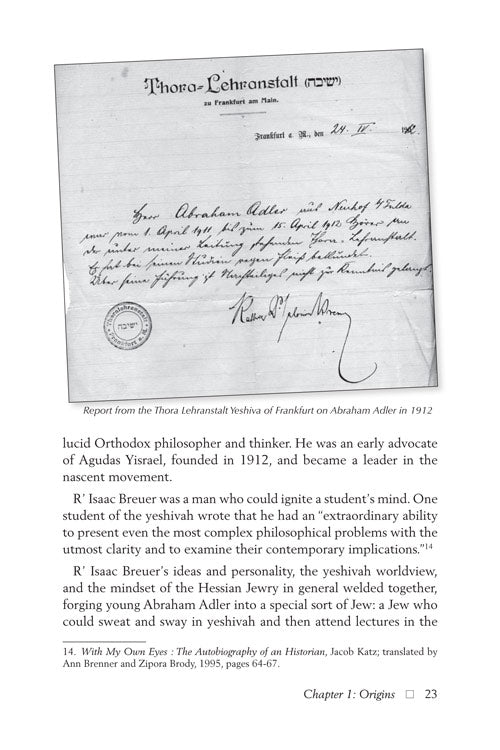 Thora-Lehranstalt (ישיבה)
zu Frankfurt am Main.
Frankfurt a. M., den 24. IV. 1912.
Herr Abraham Adler aus Neuhof b/ Fulda
war vom 1. April 1911 bis zum 15. April 1912 Hörer an
der unter meiner Leitung stehenden Thora-Lehranstalt.
Er hat bei seinen Studien regen Fleiß bekundet.
Über seine Führung ist Nachteiliges nicht zur Kenntnis gelangt.
Rabbiner Dr. Salomon Breuer
Thoralehranstalt
ישיבה
Frankfurt a. M.
Report from the Thora Lehranstalt Yeshiva of Frankfurt on Abraham Adler in 1912
lucid Orthodox philosopher and thinker. He was an early advocate
of Agudas Yisrael, founded in 1912, and became a leader in the
nascent movement.
R’ Isaac Breuer was a man who could ignite a student’s mind. One
student of the yeshivah wrote that he had an “extraordinary ability
to present even the most complex philosophical problems with the
utmost clarity and to examine their contemporary implications.”14
R’ Isaac Breuer’s ideas and personality, the yeshivah worldview,
and the mindset of the Hessian Jewry in general welded together,
forging young Abraham Adler into a special sort of Jew: a Jew who
could sweat and sway in yeshivah and then attend lectures in the
14. With My Own Eyes : The Autobiography of an Historian, Jacob Katz; translated by
Ann Brenner and Zipora Brody, 1995, pages 64-67.
Chapter 1: Origins □ 23